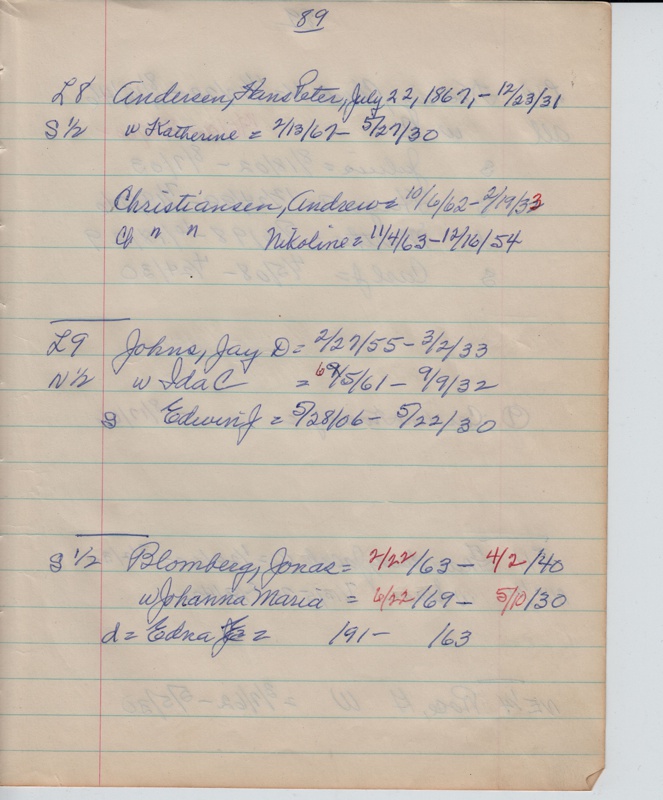 89
L8 Andersen, Hans Peter, July 22, 1867, - 12/23/31
S 1/2 w Katherine = 2/13/67 - 5/27/30
Christiansen, Andrew = 10/6/62 - 2/19/33
" " Nikoline = 11/4/63 - 12/16/54
L9 Johns, Jay D = 2/27/55 - 3/2/33
N 1/2 w Ida C = /5/61 - 9/9/32
s Edwin J = 5/28/06 - 5/22/30
S 1/2 Blomberg, Jonas = 2/22/63 - 4/2/40
w Johanna Maria = 6/22/69 - 5/10/30
d = Edna = 191- /63